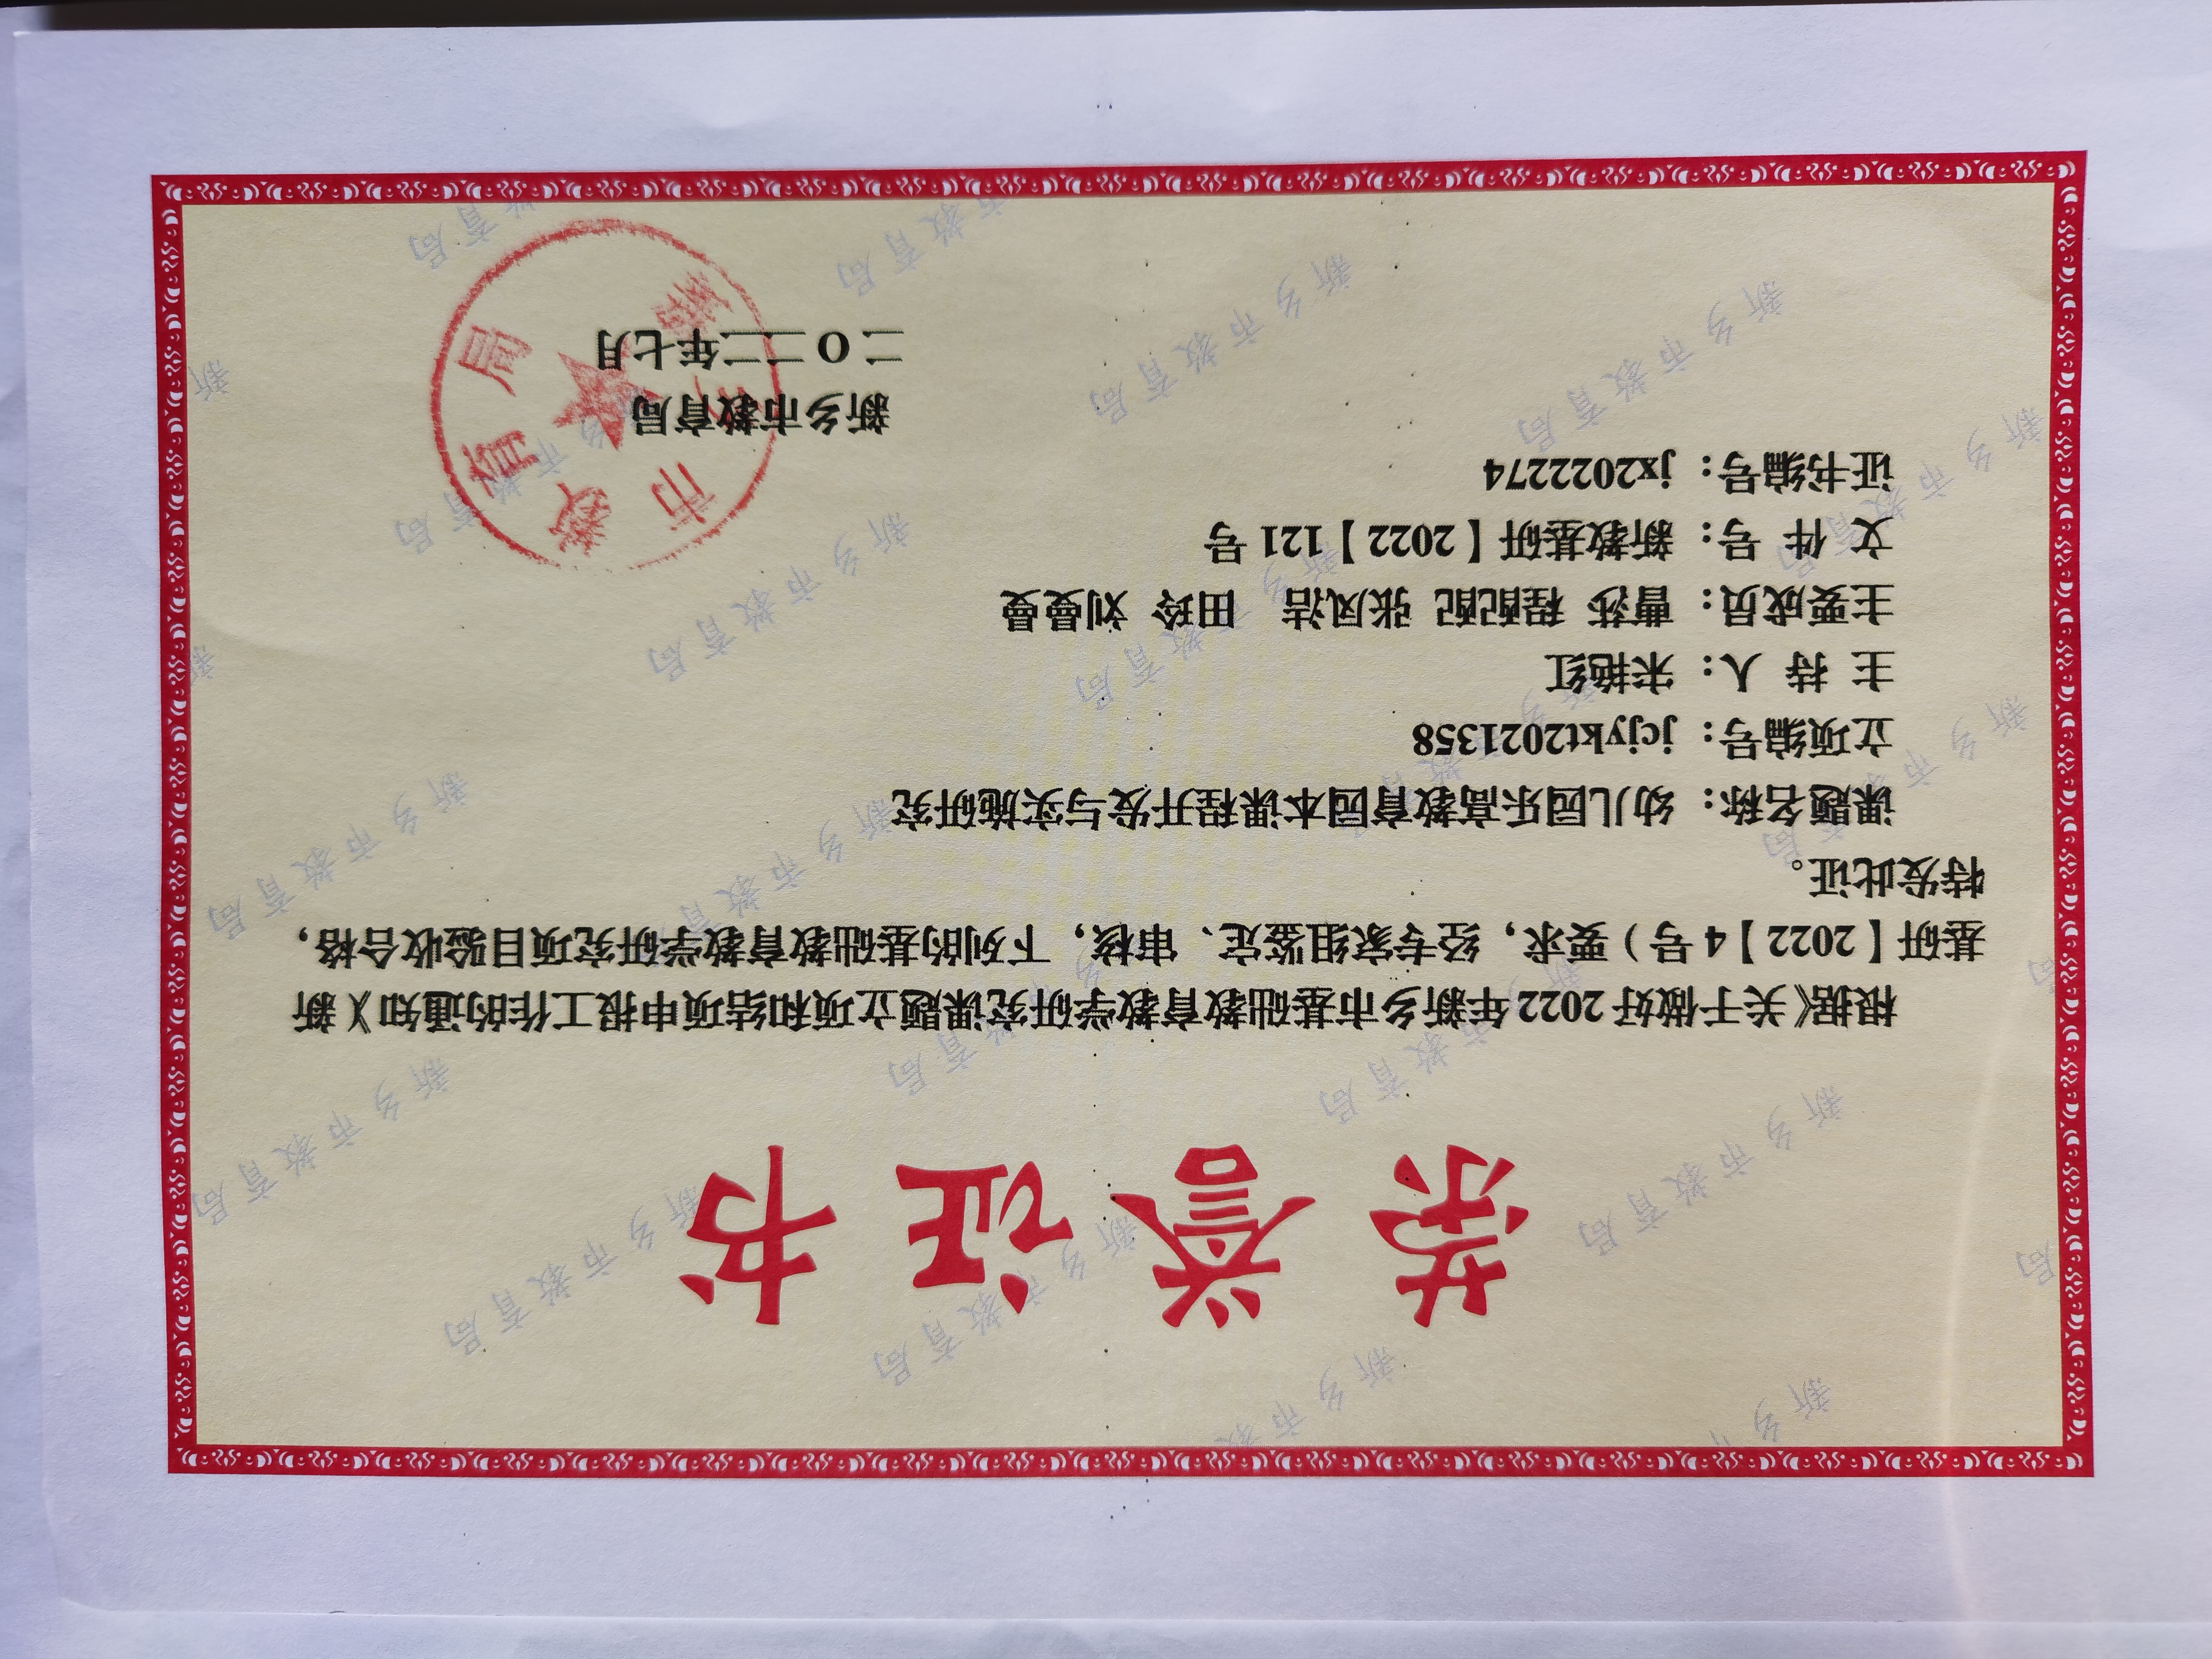 荣誉证书
根据《关于做好2022年新乡市基础教育教学研究课题立项和结项申报工作的通知》（新
基研【2022】4号）要求，经专家组鉴定、审核，下列的基础教育教学研究项目验收合格，
特发此证。
课题名称：幼儿园乐高教育园本课程开发与实施研究
立项编号：jcjykt2021358
主 持 人：宋艳红
主要成员：曹莎 程配配 张凤洁 田玲 刘曼曼
文 件 号：新教基研【2022】121号
证书编号：jx2022274
新乡市教育局
二O二二年七月